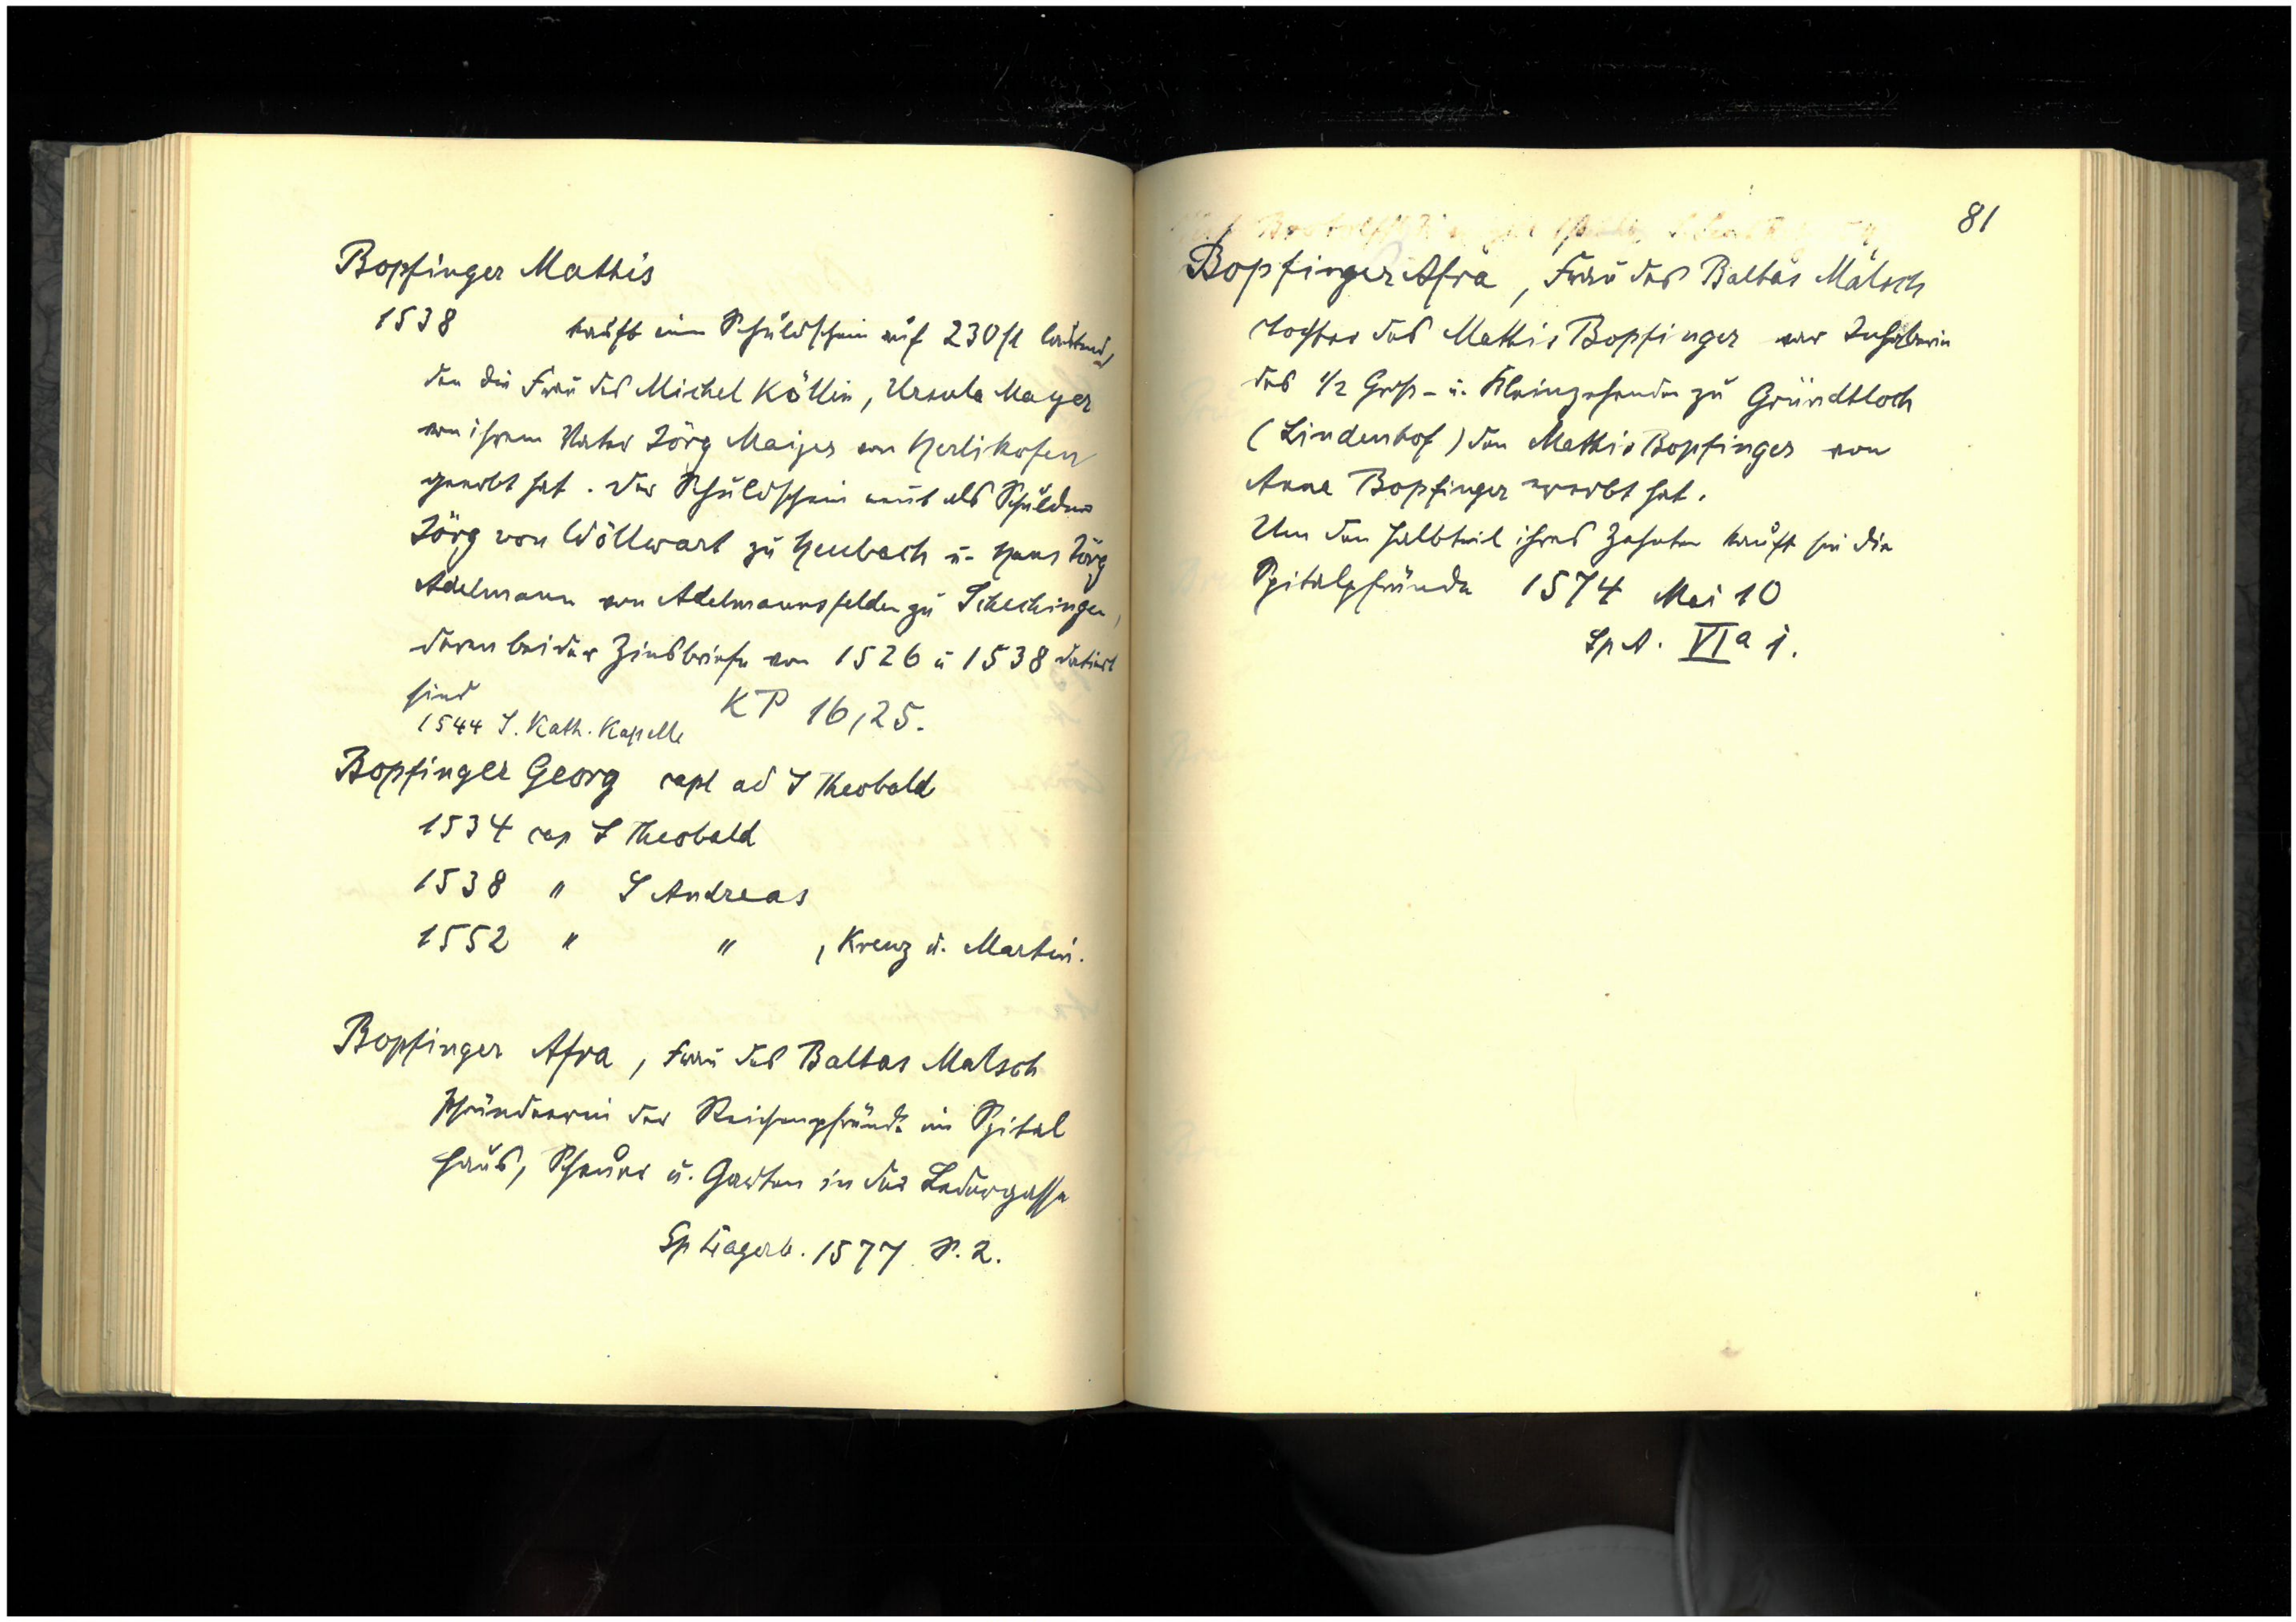 Bopfinger Mathis
1538 kauft einen Schuldschein auf 230 fl lautend,
den die Frau des Michel Köllin, Ursula Mayer
von ihrem Vater Jörg Maijer von Herlikofen
geerbt hat. Der Schuldschein nennt als Schuldner
Jörg von Wöllwart zu Heubach u. Hans Jörg
Adelmann von Adelmannsfelden zu Schechingen,
deren beider Zinsbriefe von 1526 u 1538 datiert
sind
1544 S. Kath. Kapelle KP 16,25.
Bopfinger Georg capl ad S Theobald
1534 cap S Theobald
1538 " S Andreas
1552 " " , Kreuz u. Martin.
Bopfinger Afra, Frau des Baltas Malsch
Pfründnerin der Reichenpfründe im Spital
Haus, Scheuer u. Garten in der Ledergasse
Sp Lagerb. 1577 S. 2.
81
Bopfinger Afra, Frau des Baltas Malsch
Tochter des Mathis Bopfinger war Inhaberin
des 1/2 Groß- u. Kleinzehnden zu Gründtloch
(Lindenhof) den Mathis Bopfinger von
Anna Bopfinger ererbt hat.
Um den Halbteil ihres Zehnten kauft sie die
Spitalpfründe 1574 Mai 10
Sp A. VIa 1.